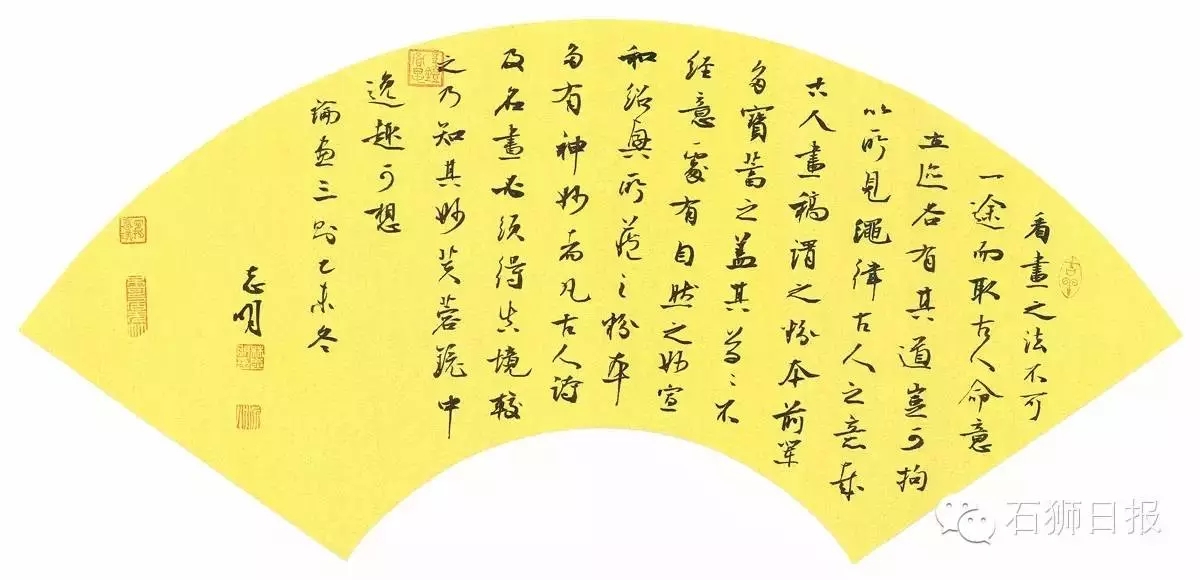 看畫之法不可
一途而取古人命意
立迹各有其道豈可拘
以所見繩律古人之意哉
古人畫稿謂之粉本前輩
多寶蓄之蓋其草々不
經意處有自然之妙宣
和紹興所藏之粉本
多有神妙者凡古人詩
及名畫必須得真境較
之乃知其妙芙蓉鏡中
逸趣可想
論畫三則乙未冬
志明
石狮日报